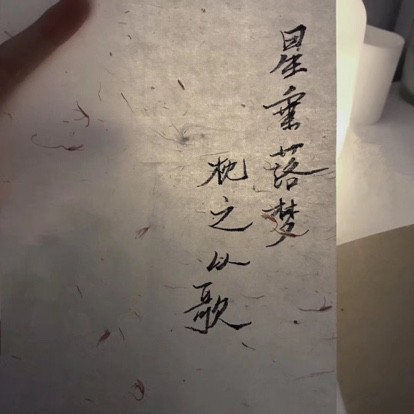 星垂落梦
枕之以歌